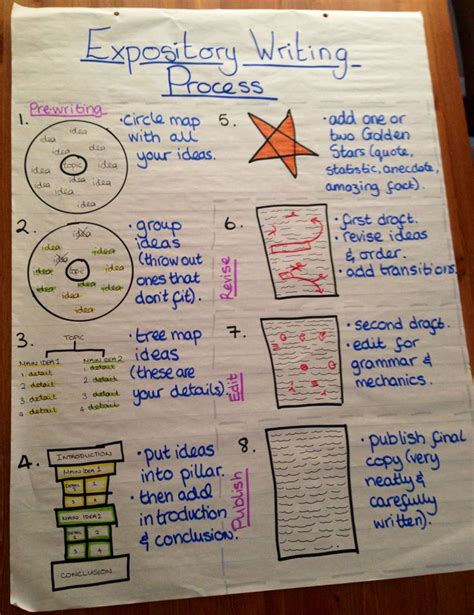 Expository Writing
Process
Prewriting
1.
idea
idea
idea
idea
idea
topic
idea
idea
idea
idea
• circle map
with all
your ideas.
2.
idea
idea
idea
idea
idea
topic
idea
idea
idea
idea
• group
ideas
(throw out
ones that
don't fit).
3.
TOPIC
MAIN IDEA 1
MAIN IDEA 2
1 detail
1 detail
2 detail
2 detail
3 detail
3 detail
4 detail
4 detail
• tree map
ideas
(these are
your details)
4.
INTRODUCTION
MAIN IDEA 1
MAIN IDEA 2
CONCLUSION
• put ideas
into pillar.
• then add
introduction
& conclusion.
5.
• add one or
two Golden
Stars (quote,
statistic, anecdote,
amazing fact).
6.
Revise
• first draft.
• revise ideas
& order.
• add transitions.
7.
Edit
• second draft.
• edit for
grammar &
mechanics.
8.
Publish
• publish final
copy (very
neatly &
carefully
written).